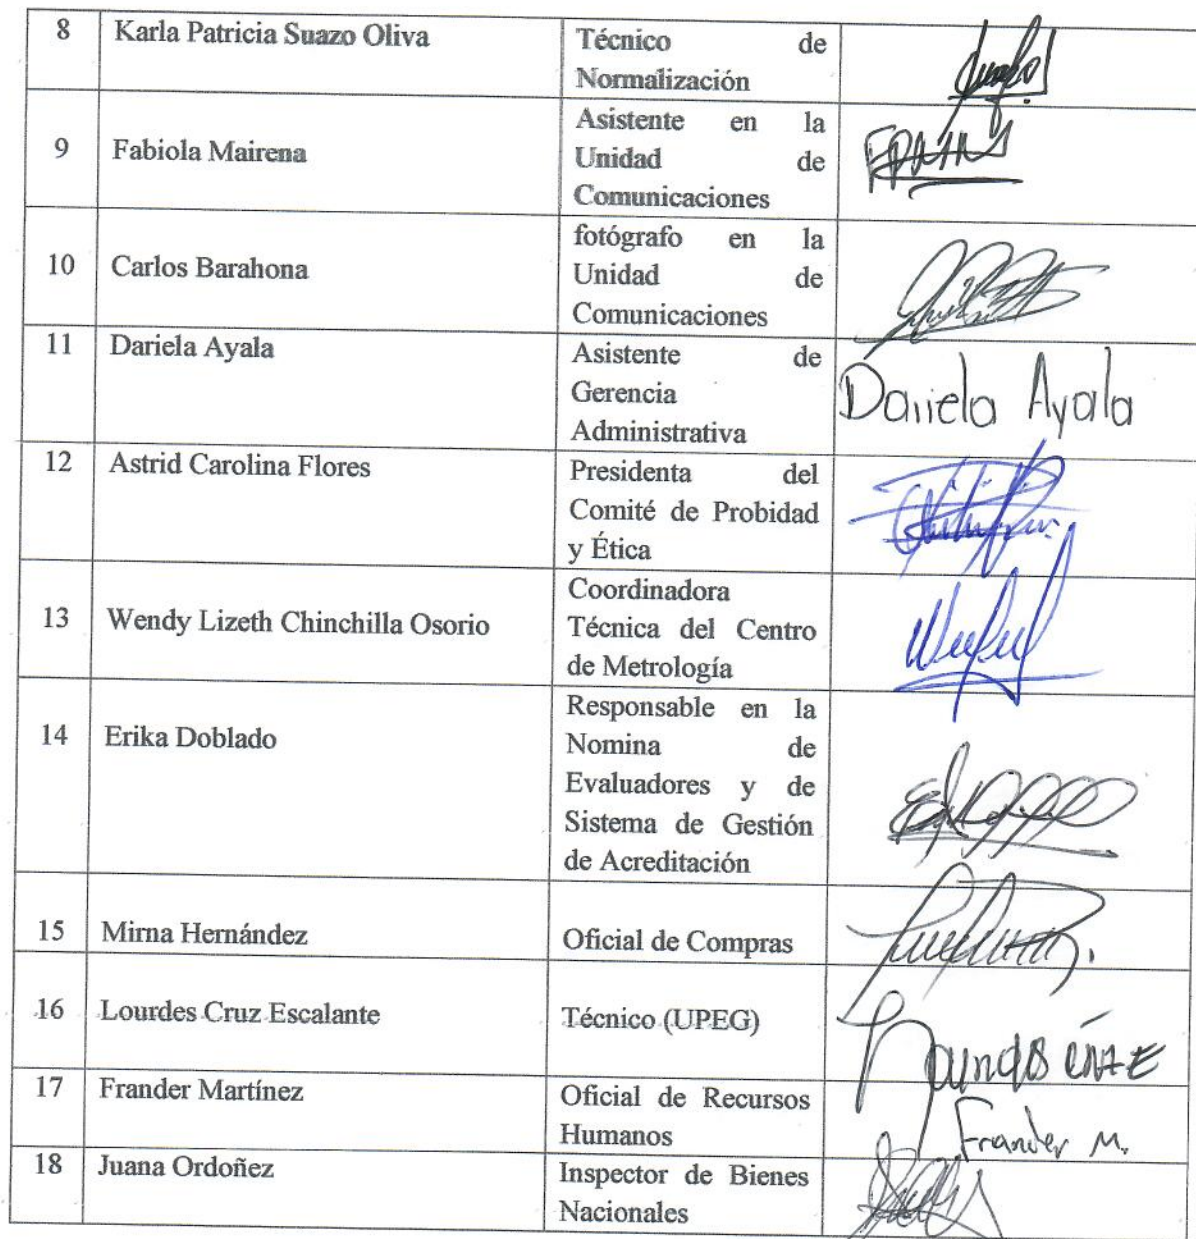 8 Karla Patricia Suazo Oliva Técnico de
Normalización
9 Fabiola Mairena Asistente en la
Unidad de
Comunicaciones
10 Carlos Barahona fotógrafo en la
Unidad de
Comunicaciones
11 Dariela Ayala Asistente de
Gerencia
Administrativa
Dariela Ayala
12 Astrid Carolina Flores Presidenta del
Comité de Probidad
y Ética
13 Wendy Lizeth Chinchilla Osorio Coordinadora
Técnica del Centro
de Metrología
14 Erika Doblado Responsable en la
Nomina de
Evaluadores y de
Sistema de Gestión
de Acreditación
15 Mirna Hernández Oficial de Compras
16 Lourdes Cruz Escalante Técnico (UPEG)
17 Frander Martínez Oficial de Recursos
Humanos
Frander M.
18 Juana Ordoñez Inspector de Bienes
Nacionales